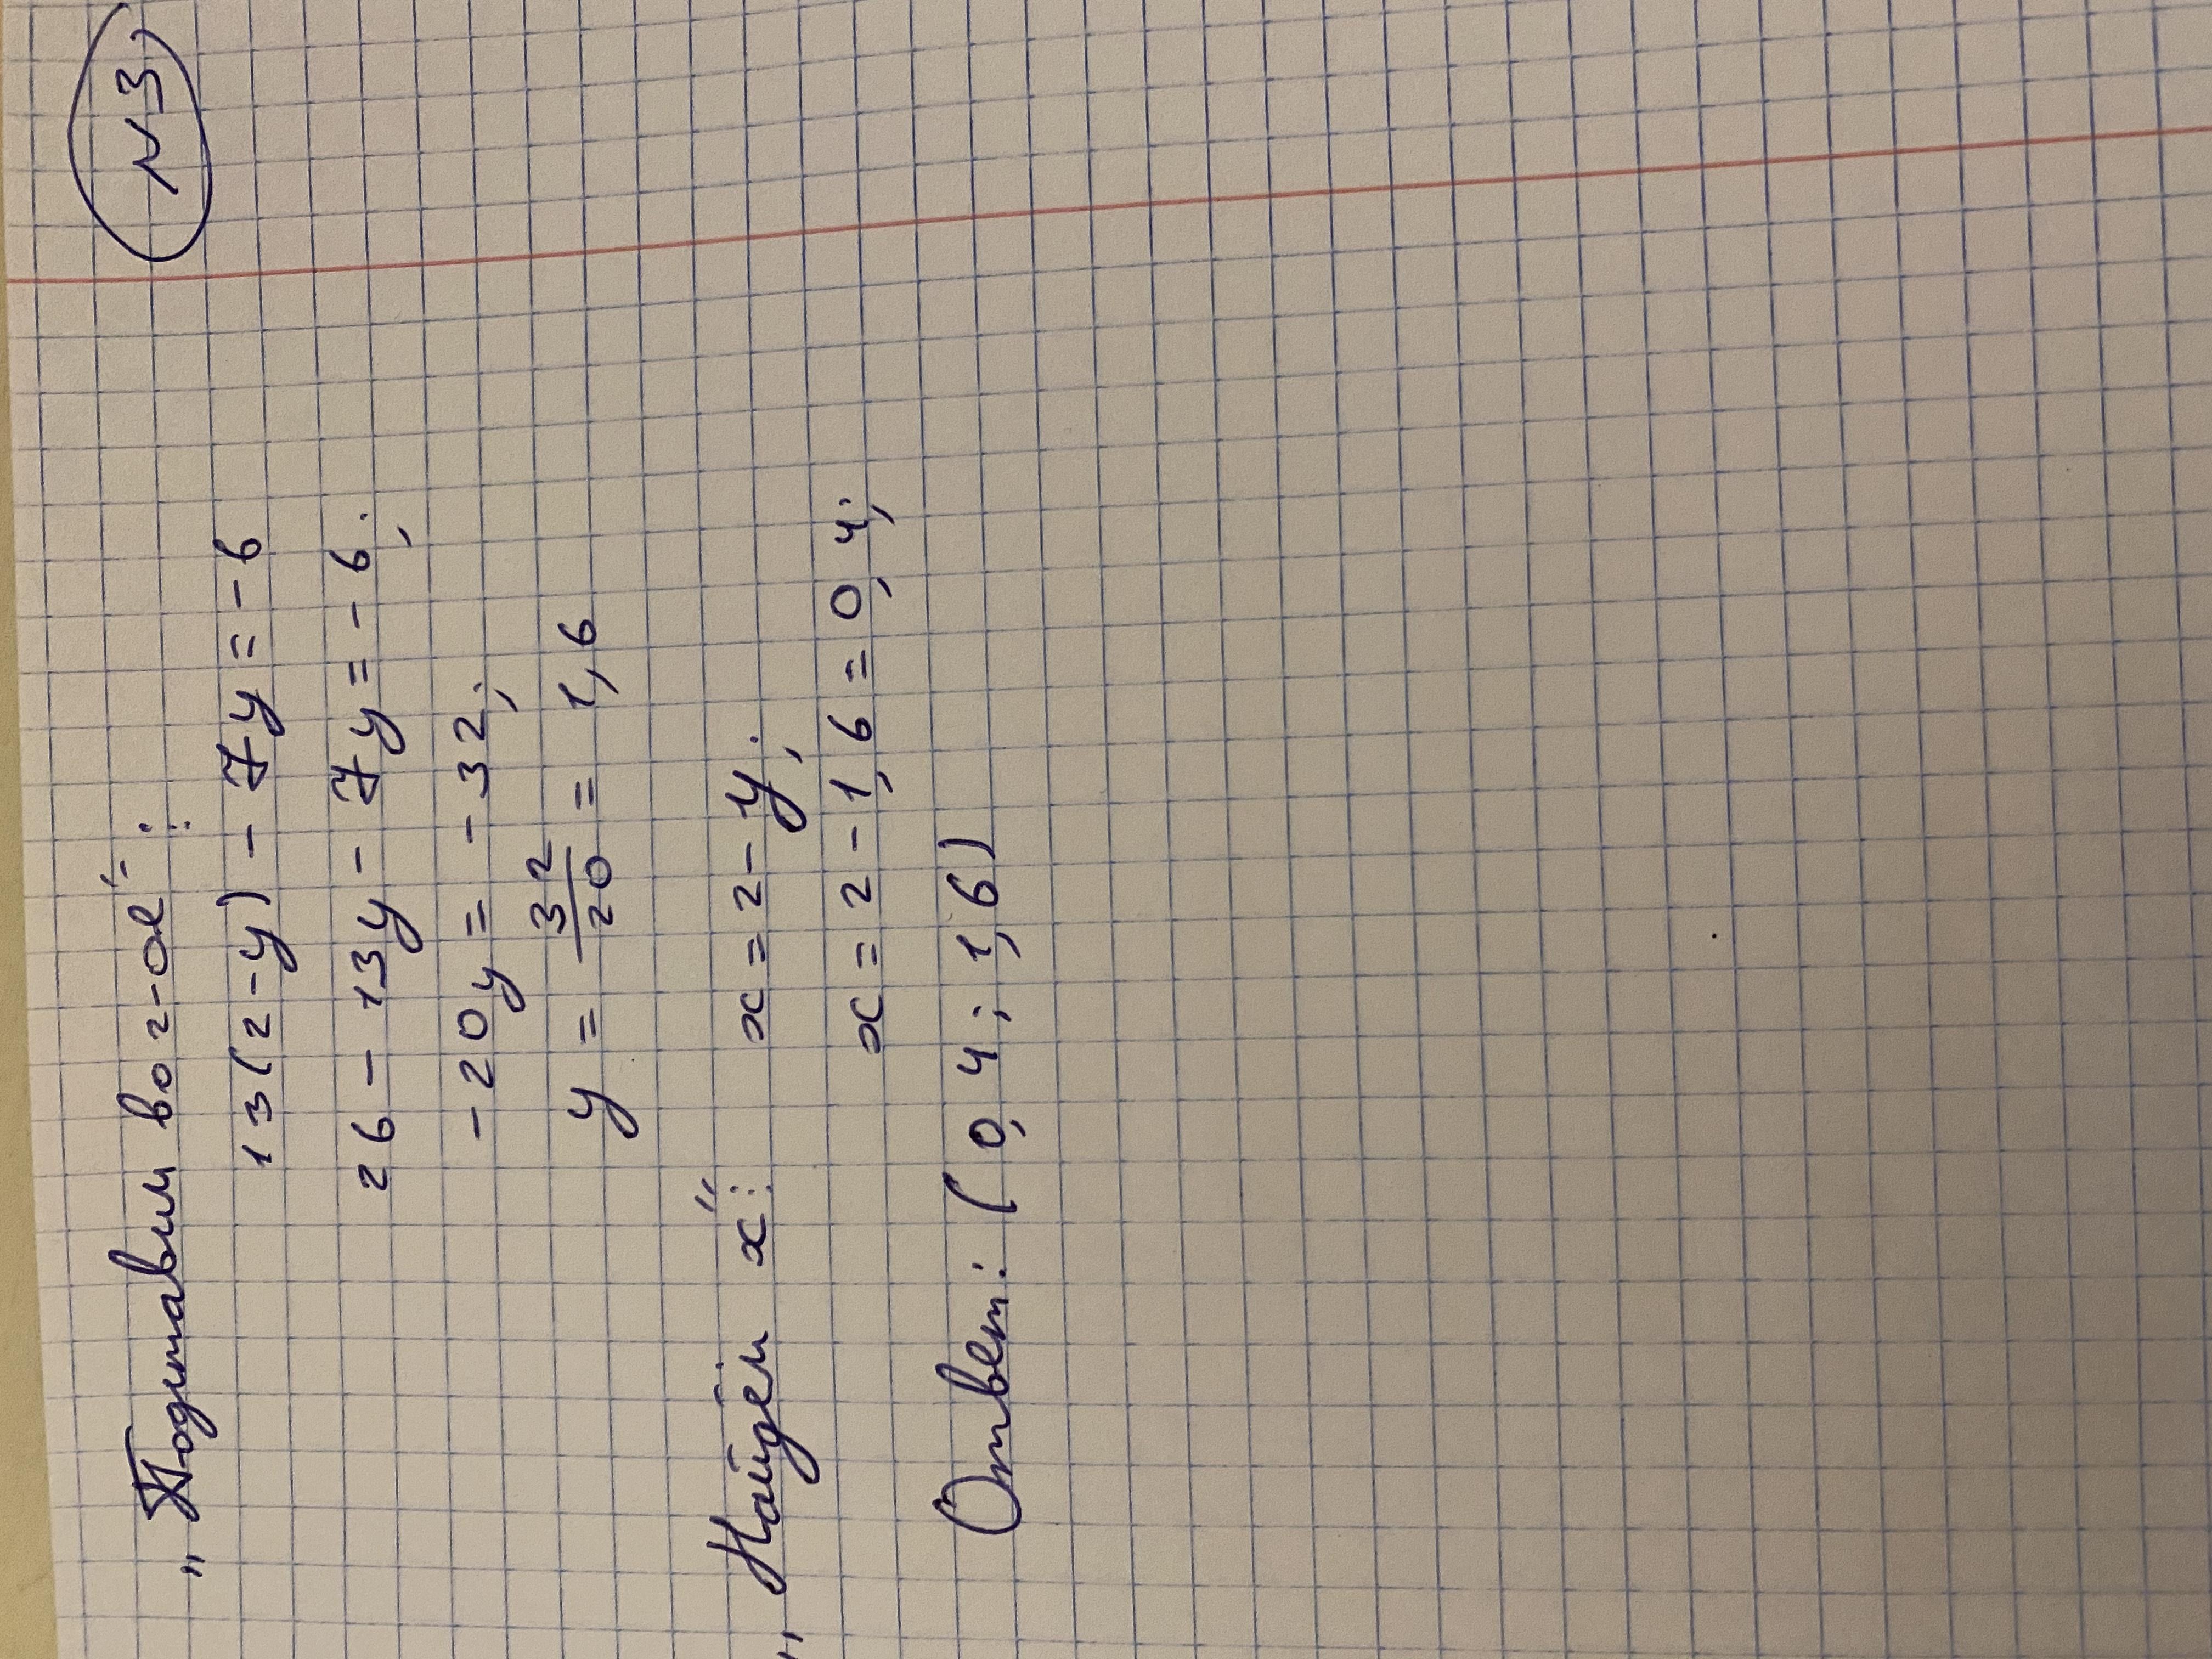 N3
„Подставим во 2-ое“:
13(2-y) - 7y = -6
26 - 13y - 7y = -6;
-20y = -32;
y = 32/20 = 1,6
„Найдём x“: x = 2-y;
x = 2-1,6 = 0,4;
Ответ: (0,4; 1,6)